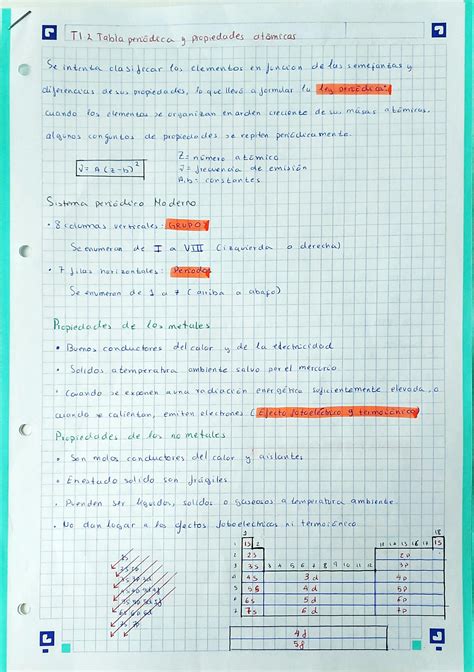 T12 Tabla periódica y propiedades atómicas
Se intenta clasificar los elementos en función de las semejantas y
diferencias de sus propiedades, lo que llevó a formular la ley periódica:
cuando los elementos se organizan en orden creciente de sus másas atómicas.
algunos conjuntos de propiedades se repiten periódicamente.
√ν = A (z-b)
Z = número atómico
ν = frecuencia de emisión
A, b: constantes
Sistema periódico Moderno
• 8 columnas verticales: GRUPOS
Se enumeran de I a VIII (izquierda a derecha)
• 7 filas horizontales: Periodos
Se enumeran de 1 a 7 (arriba a abajo)
Propiedades de los metales
• Buenos conductores del calor y de la electricidad
• Solidos a temperatura ambiente salvo por el mercurio
• Cuando se exponen a una radiación energética suficientemente elevada, o
cuando se calientan, emiten electrones (Efecto fotoeléctrico y termoiónico)
Propiedades de los no metales
• Son malos conductores del calor y aislantes
• En estado solido son frágiles
• Pueden ser líquidos, solidos o gaseosos a temperatura ambiente.
• No dan lugar a los efectos fotoelectricos ni termoiónico
1 18
1 1s 2 13 14 15 16 17 1s
2 2s 2p
3 3s 3 4 5 6 7 8 9 10 11 12 3p
4 4s 3d 4p
5 5s 4d 5p
6 6s 5d 6p
7 7s 6d 7p
4f
5f
1s
2s 2p
3s 3p 3d
4s 4p 4d 4f
5s 5p 5d 5f
6s 6p 6d
7s 7p